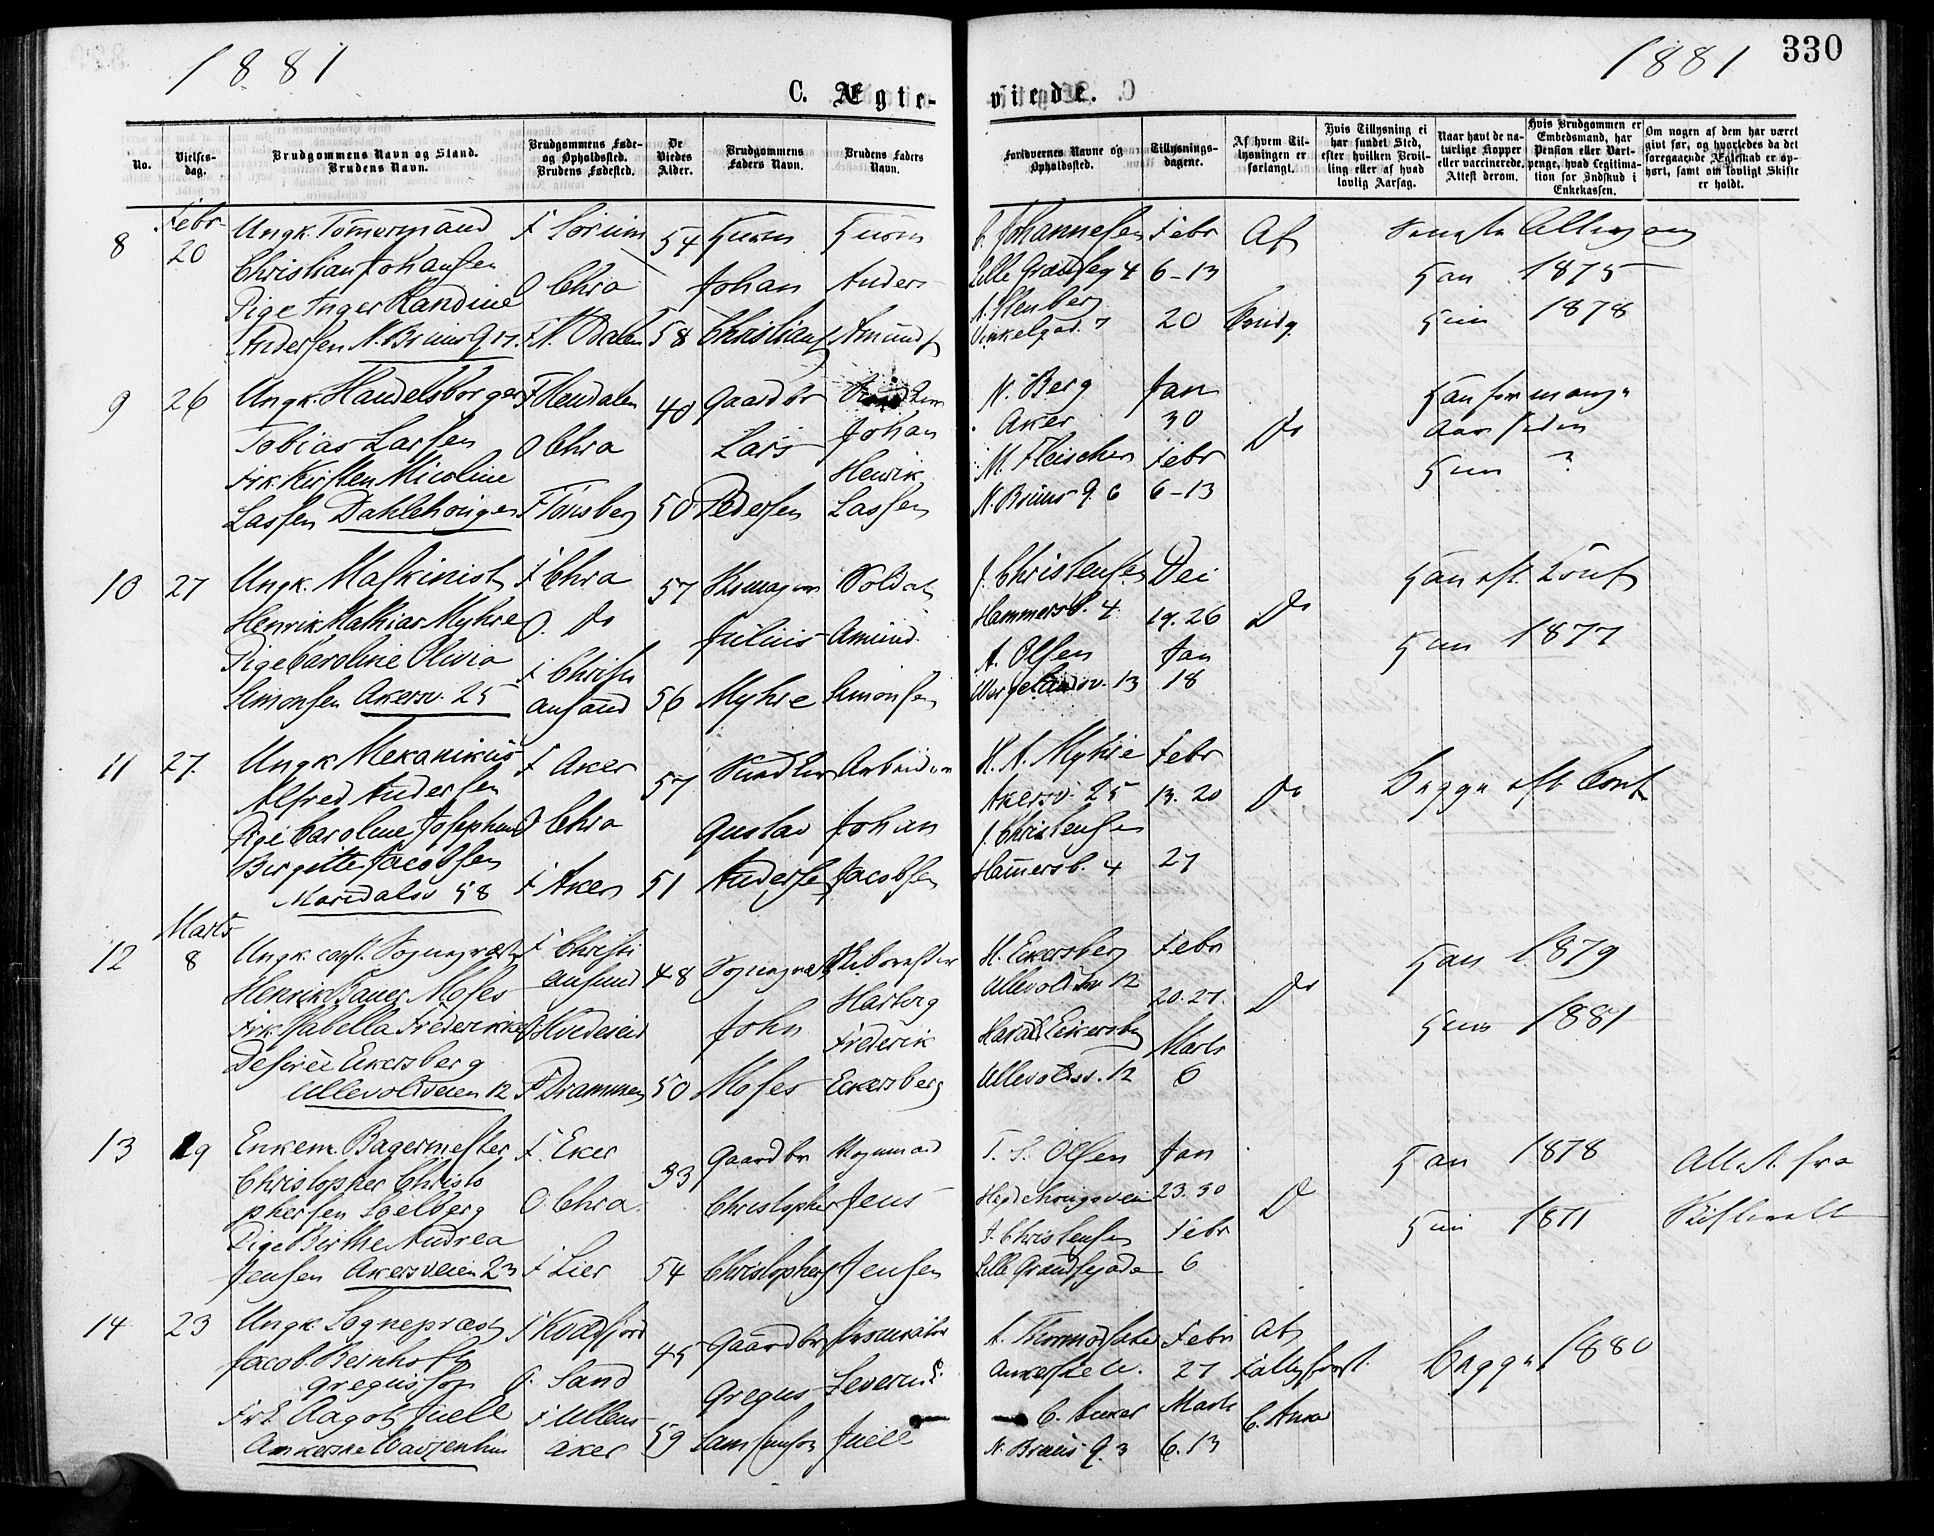 1881
1881
330
C. Ægte-
viede.
No.
Vielses-
dag.
Brudgommens Navn og Stand.
Brudens Navn.
Brudgommens Føde-
og Opholdssted.
Brudens Fødested.
De
Viedes
Alder.
Brudgommens
Faders Navn.
Brudens Faders
Navn.
Forlovernes Navne og
Opholdssted.
Tillysnings-
dagene.
Af hvem Til-
lysningen er
forlangt.
Hvis Tillysning ei
har fundet Sted,
efter hvilken Bevil-
ling eller af hvad
lovlig Aarsag.
Naar havt de na-
turlige Kopper
eller vaccinerede.
Attest derom.
Hvis Brudgommen er
Embedsmand, har
Pension eller Vart-
penge, hvad Legitima-
tion for Indskud i
Enkekassen.
Om nogen af dem har været
givt før, og hvorledes da det
foregaaende Ægteskab er op-
hørt, samt om lovligt Skifte
er holdt.
8
Febr
20
Ungk. Tömermand
Christian Johansen
Pige Inger Randine
Andersen N. Brunsg
F Sörum
O Chra
F N. Odalen
54
58
Huusm
Johan
Christians
Huusm
Anders
Amunds
Johannesen
Lille Grændseg 4
A. Stenberg
Vinkelgad. 7
Febr
6-13
20
Af
Brudg
Han 1875
Hun 1878
9
26
Ungk. Handelsborger
Tobias Larsen
Frk. Kirsten Nicoline
Lassen Dahlehougen
O Chra
F Tönsberg
40
50
Gaardbr
Lars
Pedersen
Johan
Henrik
Lassen
N. Berg
Aker
M. Fleischer
N. Bruns g. 6
Jan
30
Febr
6-13
Do
Han for mange
Aar siden
Hun ?
10
27
Ungk. Maskinist
Henrik Mathias Myhre
Pige Caroline Olivia
Simonsen Akersv. 25
F Chra
O. Do
F Christi
ansand
57
56
Julius
Myhre
Soldat
Amund
Simonsen
J. Christensen
Hammersb. 4
A. Olsen
Wergelandsv. 13
Dec
19. 26
Jan
18
Do
Han eft. Conf
Hun 1877
11
27.
Ungk Mekanikus
Alfred Andersen
Pige Caroline Josephine
Birgitte Jacobsen
Maridalsv 58
F Aker
O Chra
F Aker
57
51
Gustav
Andersen
Arbeider
Johan
Jacobsen
H. A. Myhre
Akersv. 25
J. Christensen
Hamersb. 4
Febr
13. 20
27
Do
Begge eft Conf
12
Marts
8
Ungk. Sognepræst
Henrik Bauer Moses
Frk. Isabella Frederikke
Desiree Eckersberg
Ullevoldveien 12
F Christi
ansund
O Hvideseid
F Drammen
48
50
Sognepræst
John
Moses
Hartvig
Frederik
Eckersberg
H. Eckersberg
Ullevoldsv 12
Harald Eckersberg
Ullevoldsv. 12
Febr
20. 27.
Marts
6
Do
Han 1879
Hun 1881
13
19
Enkem. Bagermester
Christopher Christo
phersen Solberg
Pige Birthe Andrea
Jensen Akersveien 23
F. Eker
O. Chra.
F Lier
54
Gaardbr
Christopher
Christophers
Vognmand
Jens
Jensen
T. S. Olsen
Hegdehougsveien
J. Christensen
Lille Grændsegade
Jan
23. 30
Febr
6
Do
Han 1878
Hun 1871
Attest fra
Skifteret
14
23
Ungk. Sognepræst
Jacob Bernhoft
Gregussen
Frk Aagot Juell
Ankerske Waisenhus
F Kvædfjord
O. Sand
F Ullens
aker
45
59
Gaardbr
Gregus
Samsonson
Prokurator
Severin
Juell
Ankerske W.
C. Anker
N. Bruns g. 3
Febr
27
Marts
6. 13
af
C. Anker
Begge 1880